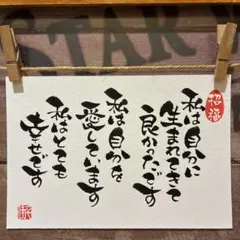 私は自分に
生まれてきて
良かったです
私は自分を
愛しています
私はとても
幸せです
招福
STAR